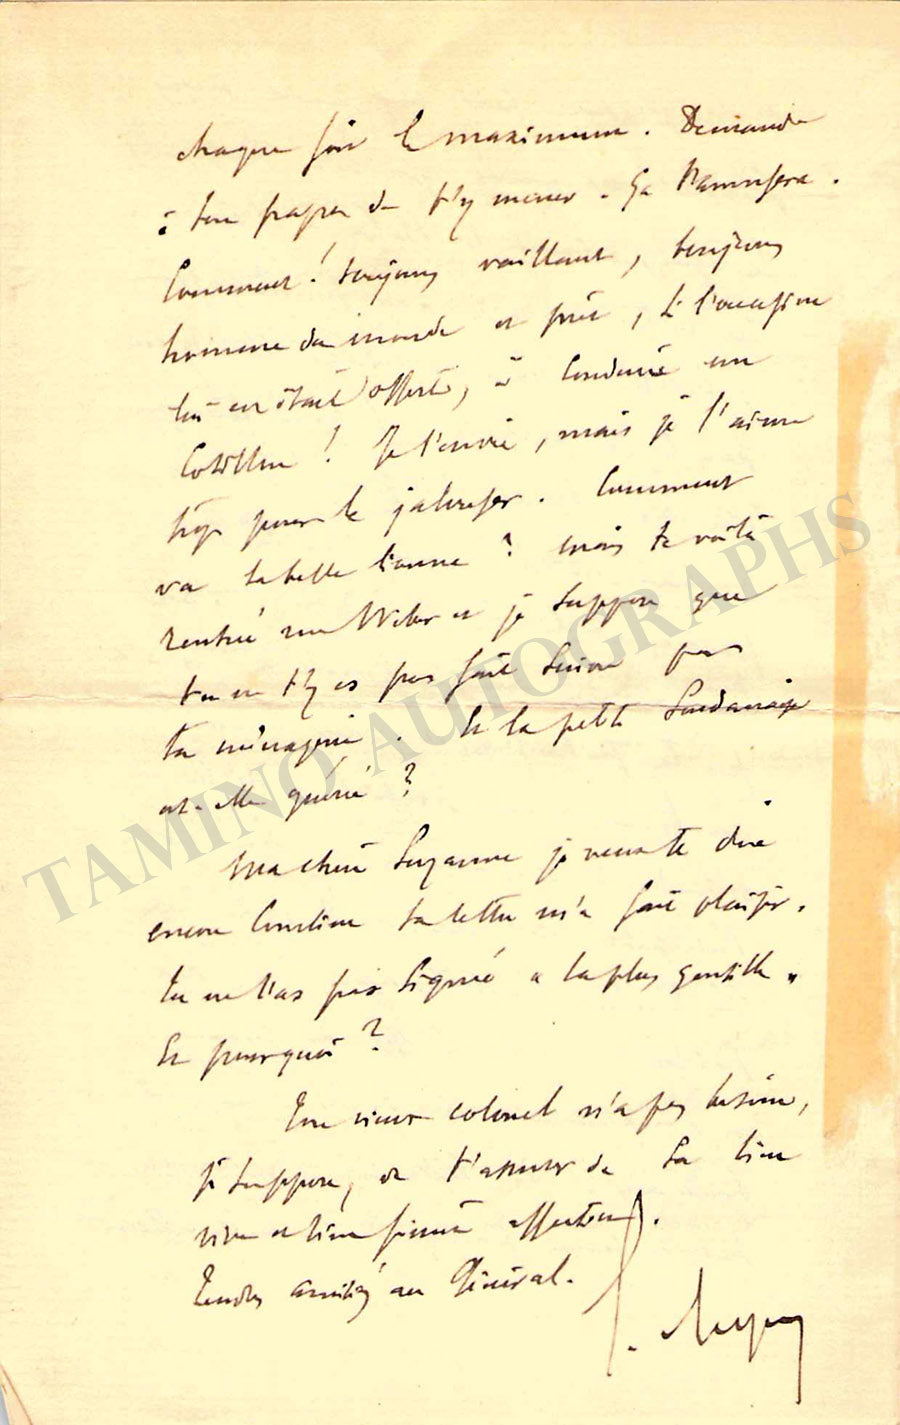 chaque fois le maximum. Demande
à ton papa de t'y mener. Ça l'amusera.
Comment! toujours vaillant, toujours
homme du monde et prêt, si l'occasion
lui en était offerte, à conduire un
Cotillon! Je l'envie, mais je l'aime
trop pour le jalouser. Comment
va ta belle lionne? mais te voilà
rentrée rue Weber et je suppose que
tu ne t'y es pas fait suivre par
ta ménagerie. Et la petite
est-elle guérie?
Ma chère Suzanne je veux te dire
encore combien ta lettre m'a fait plaisir.
Tu ne l'as pas signée "la plus gentille"
Et pourquoi?
Ton vieux colonel n'a pas besoin,
je suppose, de t'assurer de sa bien
vive et bien sincère affection.
Tendres amitiés au Général.
TAMINO AUTOGRAPHS